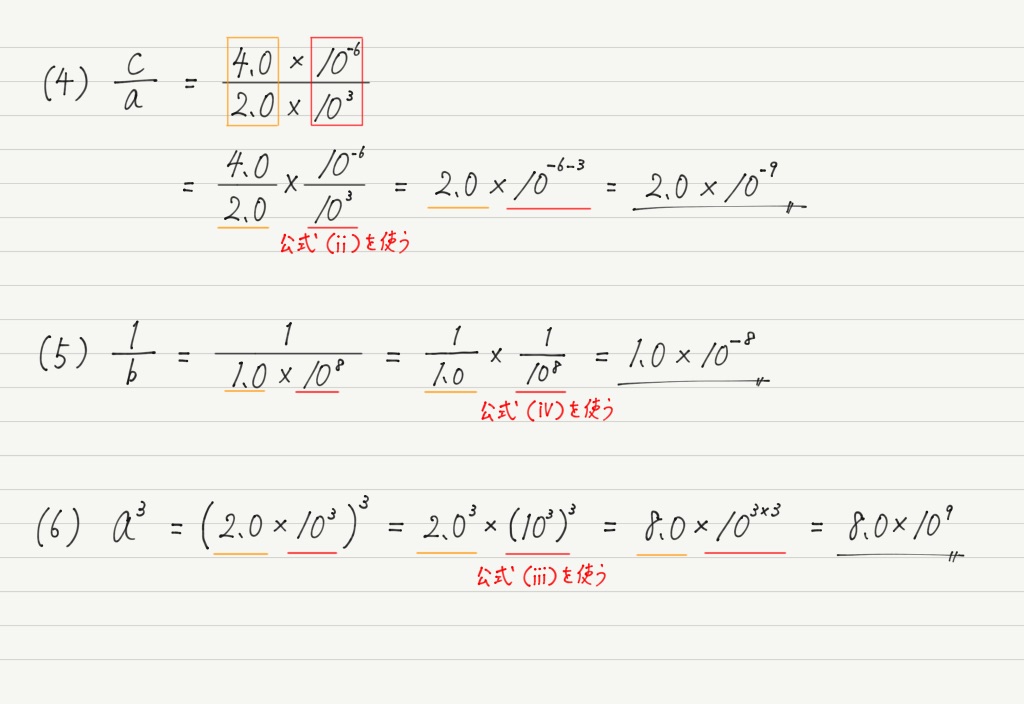 (4) c/a = (4.0 × 10⁻⁶)/(2.0 × 10³)
= 4.0/2.0 × 10⁻⁶/10³ = 2.0 × 10⁻⁶⁻³ = 2.0 × 10⁻⁹
公式(ii)を使う
(5) 1/b = 1/(1.0 × 10⁸) = 1/1.0 × 1/10⁸ = 1.0 × 10⁻⁸
公式(iv)を使う
(6) a³ = (2.0 × 10³)³ = 2.0³ × (10³)³ = 8.0 × 10³ˣ³ = 8.0 × 10⁹
公式(iii)を使う